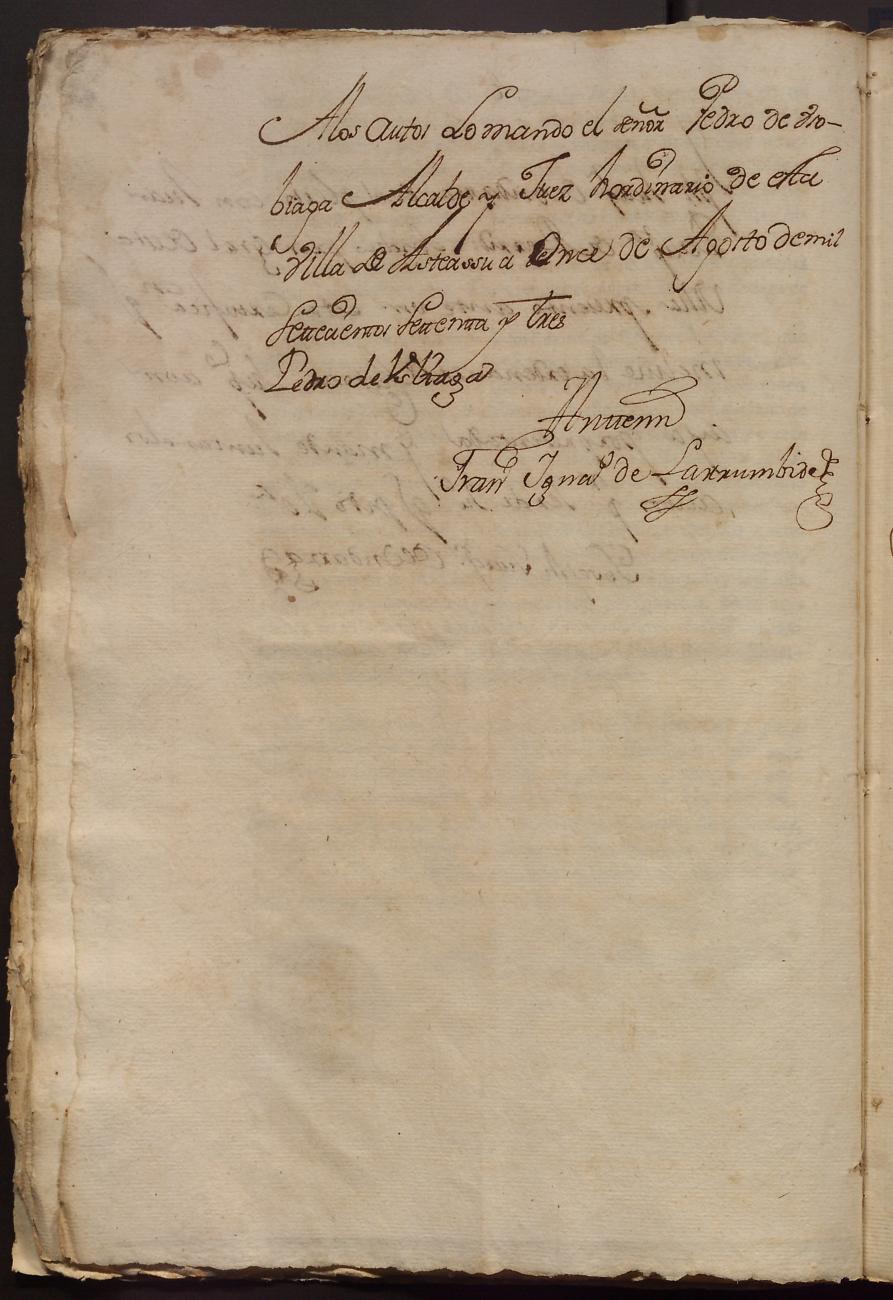 Alos autos Lo mando el señor Pedro de
biaga Alcalde y Juez hordinario de esta
Villa de Asteassu a Onze de Agosto de mil
Setecientos Setenta y Tres
Pedro de
Antemi
Fran.co Ignaº de Larrumbide